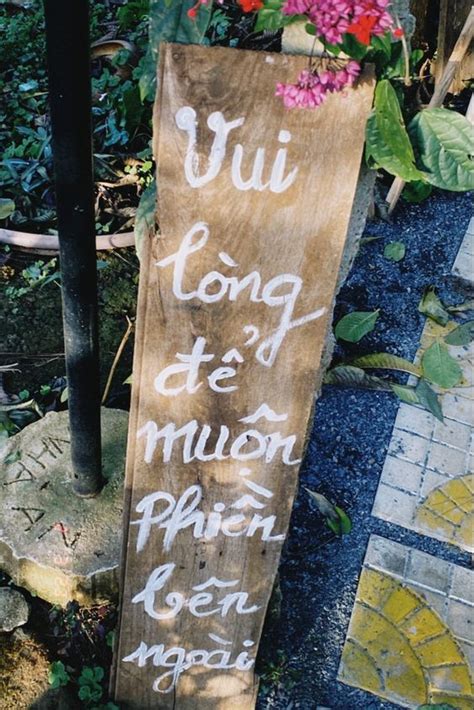 Vui
lòng
để
muộn
Phiền
bên
ngoài